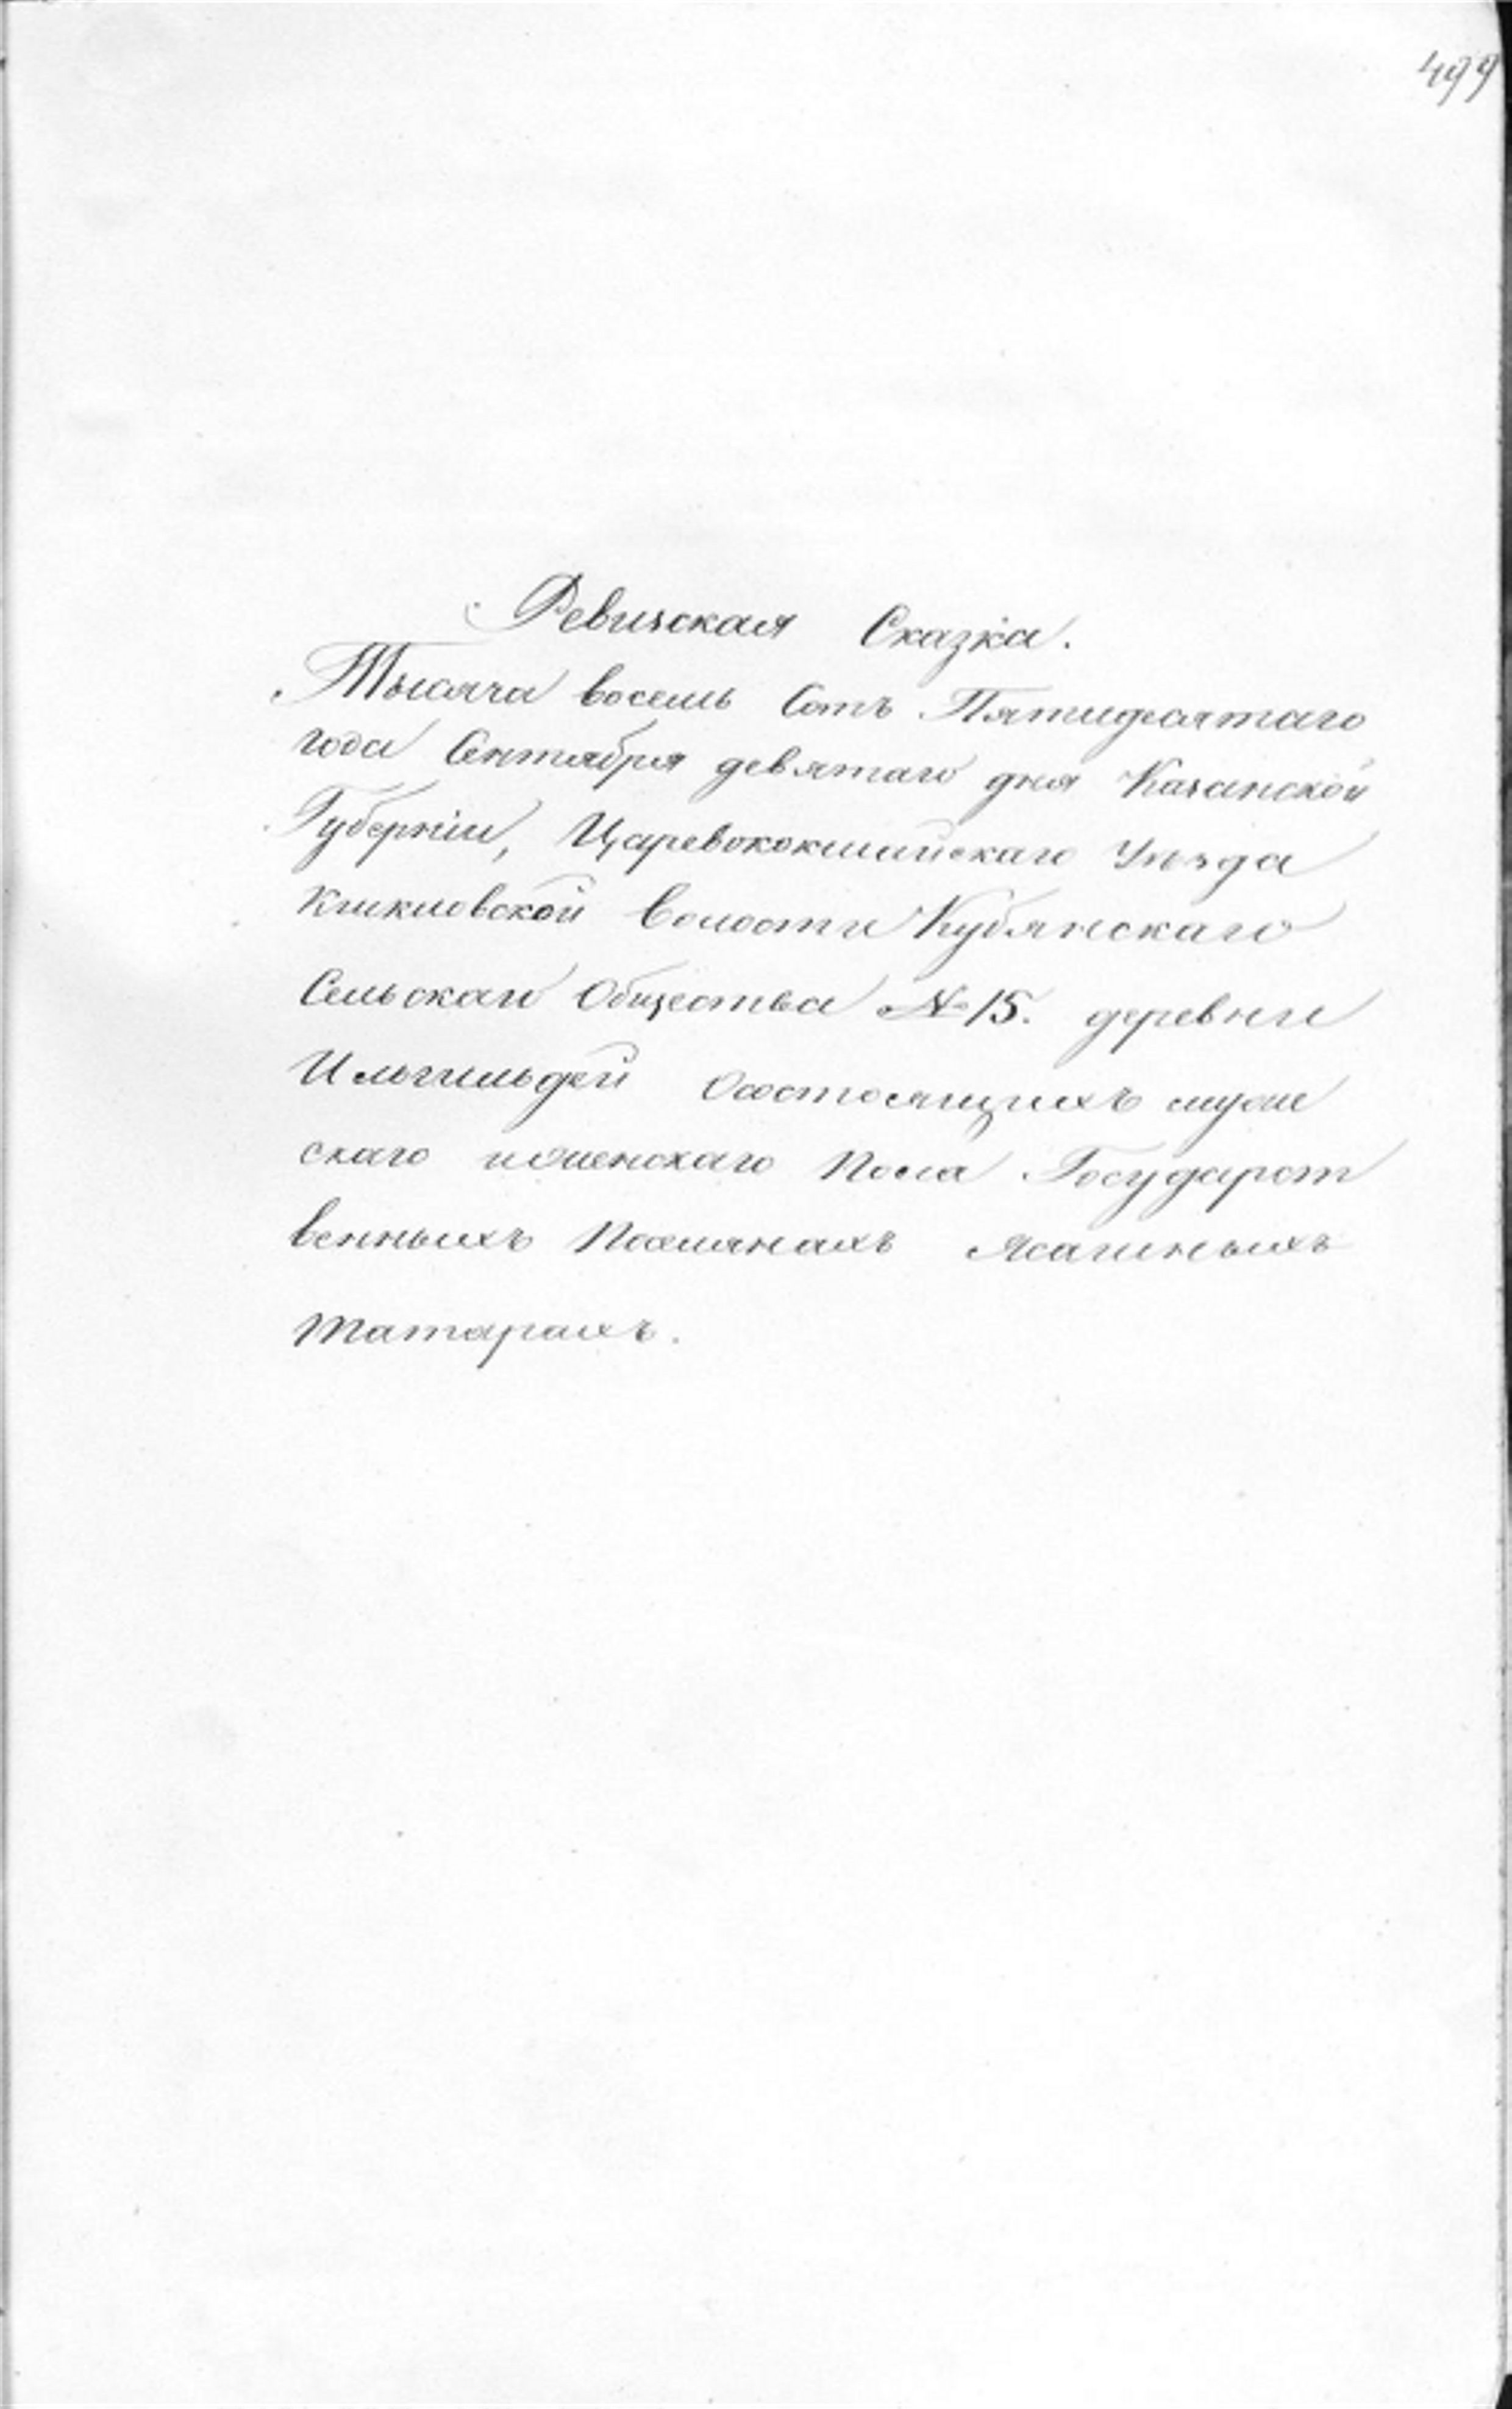 499
Ревизская Сказка.
Тысяча восемь Сотъ Пятидесятаго
года Сентября девятаго дня Казанской
Губерніи, Царевококшайскаго Уѣзда
волости Кубянскаго
Сельскаго Общества №15. деревни
Ильгильдей Осостоящихъ муже
скаго иженскаго Пола Государст
венныхъ Поселянахъ Ясашныхъ
Татарахъ.